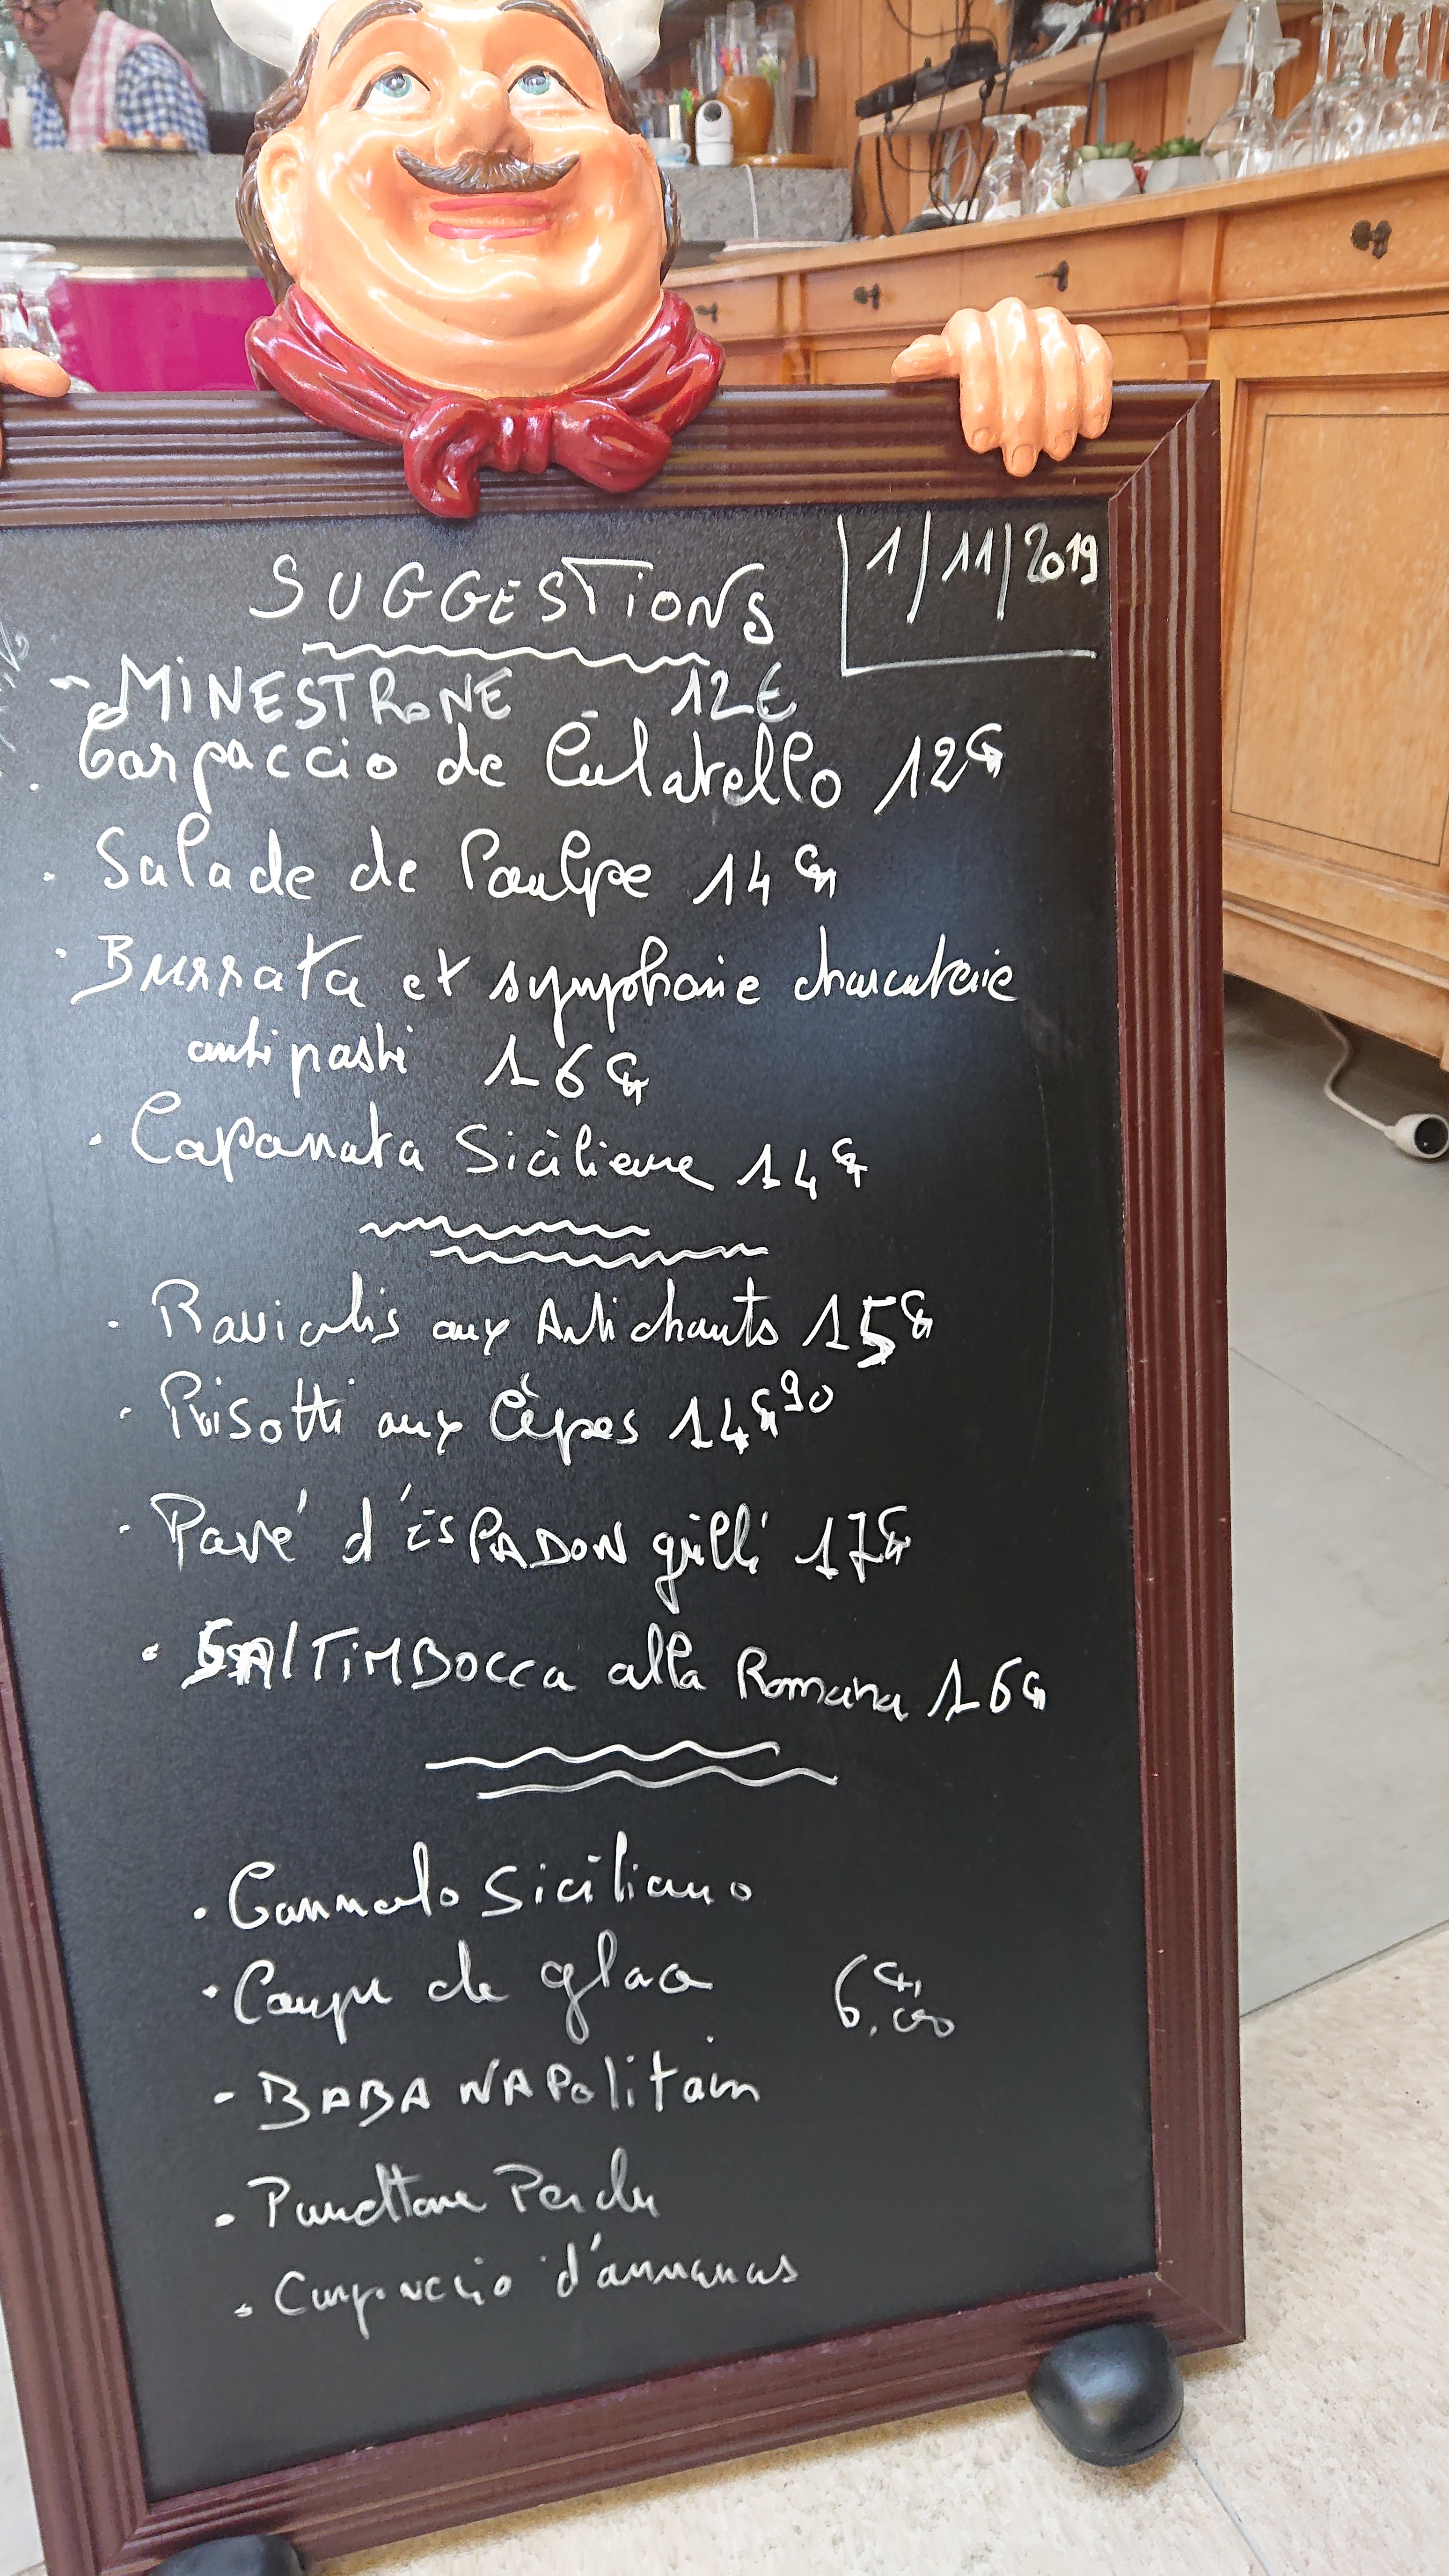 SUGGESTIONS
1/11/2019
- MINESTRONE 12€
. Carpaccio de Culatello 12€
. Salade de Poulpe 14€
. Burrata et symphonie charcuterie
antipasti 16€
. Capanata Sicilienne 14€
. Raviolis aux Artichauts 15€
. Risotti aux Cèpes 14€90
. Pavé d'ésPADON grillé 17€
. SAlTiMBOcca alla Romana 16€
. Cannolo Siciliano
. Coupe de glace 6.€00
- BABA NAPolitain
. Panettone Perdu
. Carpaccio d'annanas